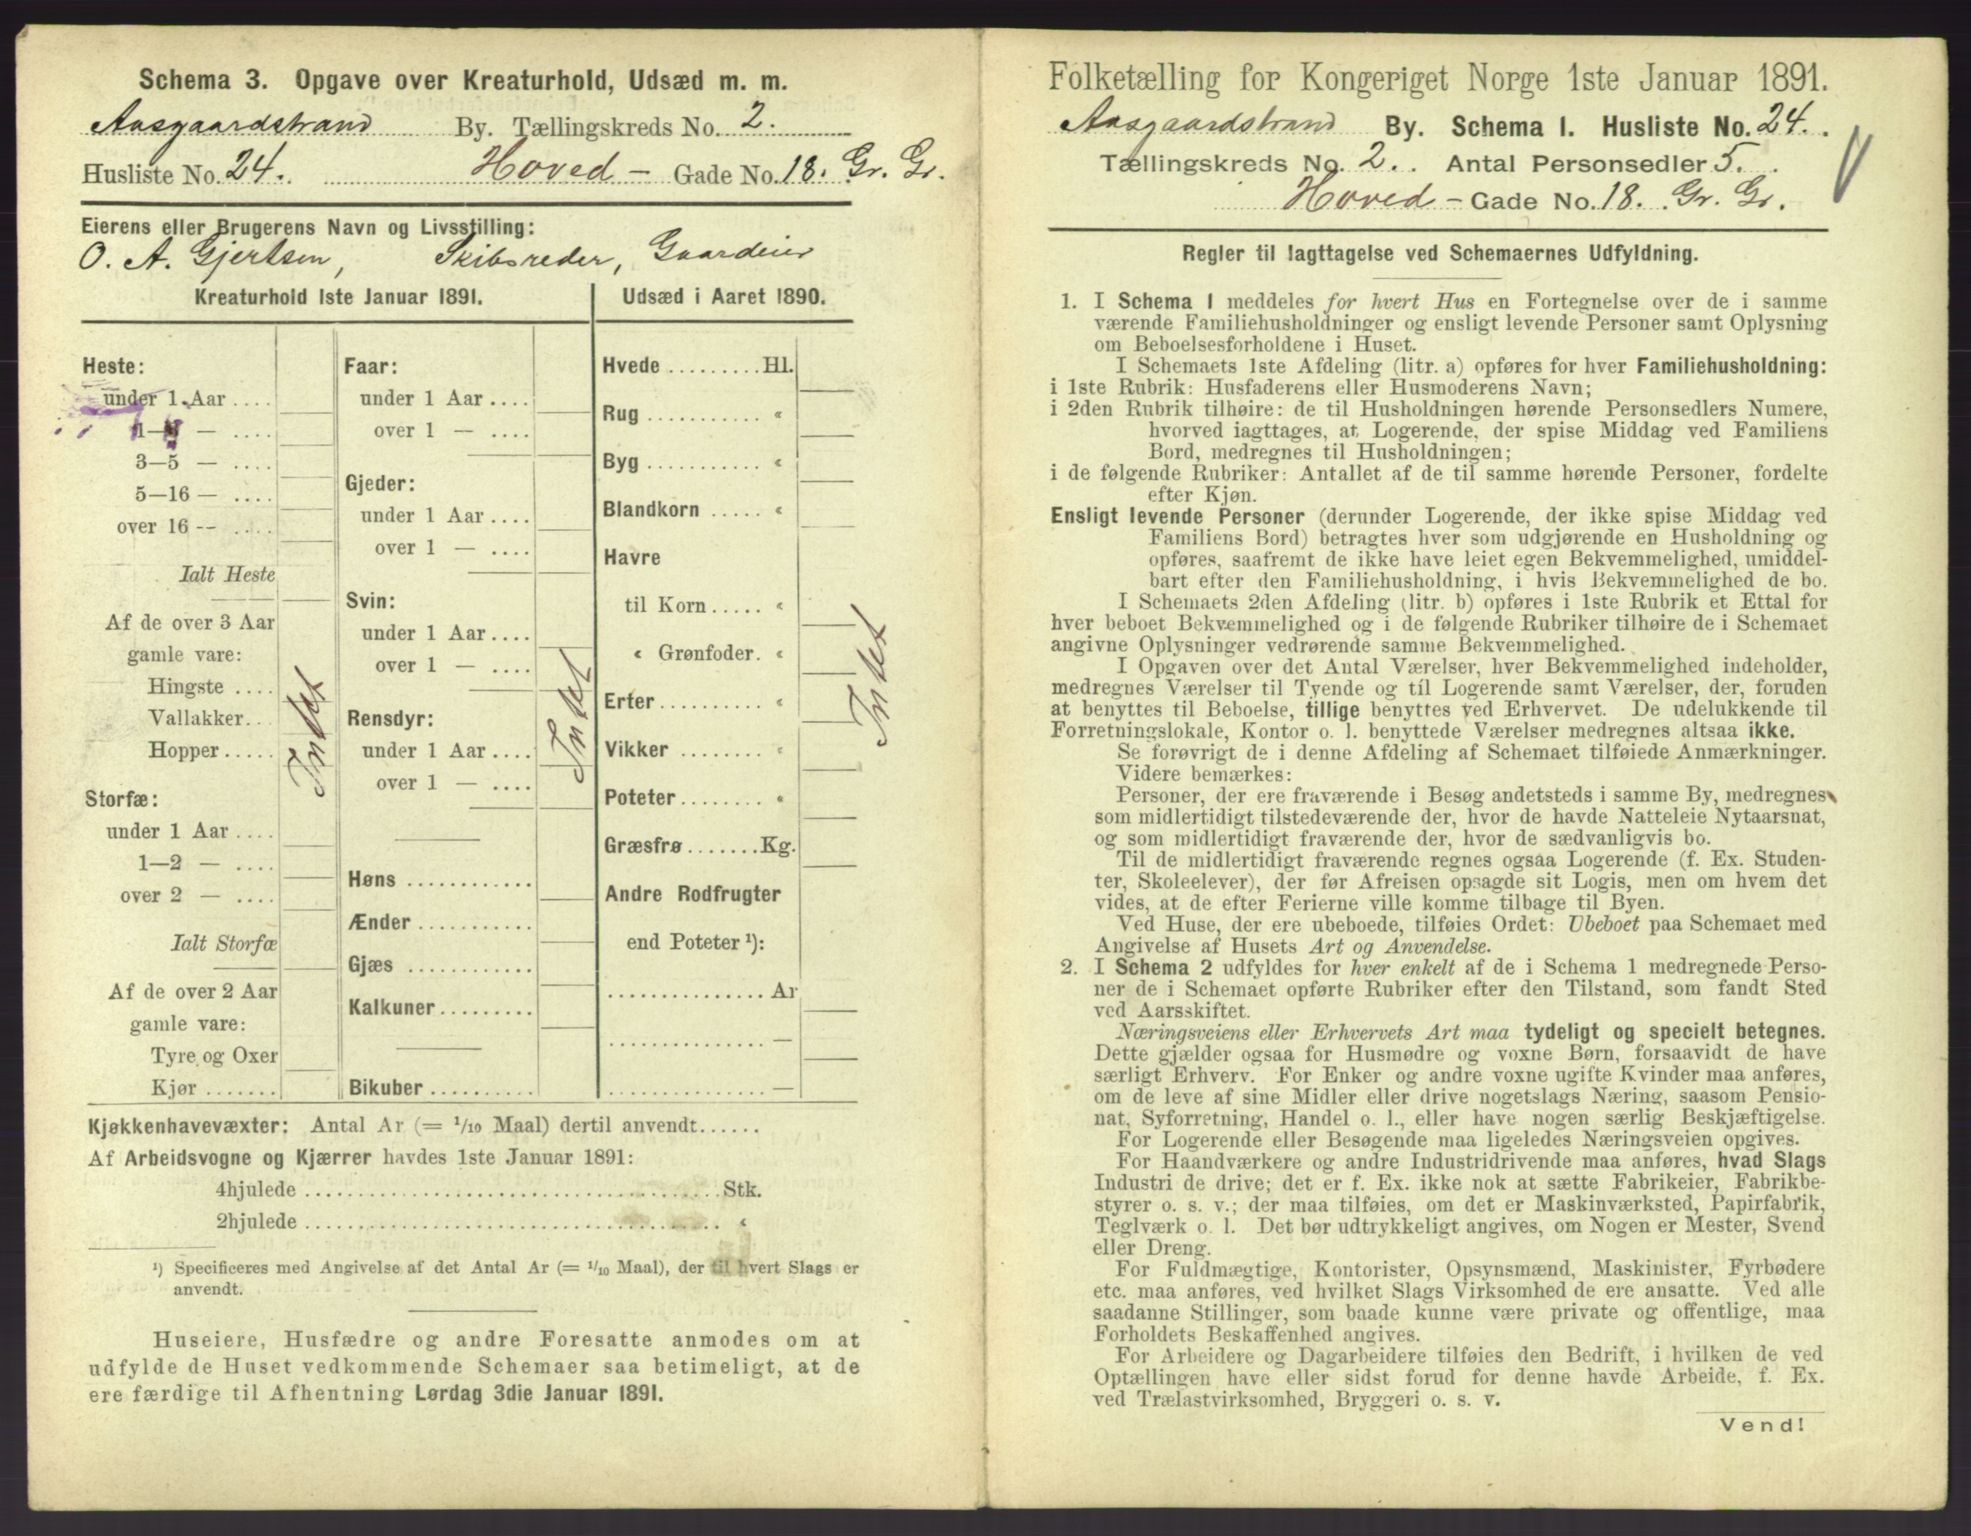 Schema 3. Opgave over Kreaturhold, Udsæd m. m.
Aasgaardstrand By. Tællingskreds No. 2.
Husliste No. 24. Hoved - Gade No. 18. Gr. Gr.
Eierens eller Brugerens Navn og Livsstilling:
O. A. Gjertsen, Skibsreder, Gaardeier
Kreaturhold 1ste Januar 1891.
Heste:
under 1 Aar ....
1— —
3—5 — ....
5—16 — ....
over 16 -- ....
Ialt Heste
Af de over 3 Aar
gamle vare:
Hingste ....
Vallakker...
Hopper .....
Storfæ:
under 1 Aar ....
1—2 — ....
over 2 — ....
Ialt Storfæ
Af de over 2 Aar
gamle vare:
Tyre og Oxer
Kjør .......
Intet
Faar:
under 1 Aar ....
over 1 — ....
Gjeder:
under 1 Aar ....
over 1 — ....
Svin:
under 1 Aar ....
over 1 — ....
Rensdyr:
under 1 Aar ....
over 1 — ....
Høns ............
Ænder ...........
Gjæs ............
Kalkuner.........
Bikuber ..........
Intet
Udsæd i Aaret 1890.
Hvede ......... Hl.
Rug ........... «
Byg ........... «
Blandkorn ..... «
Havre
til Korn ..... «
« Grønfoder. «
Erter.......... «
Vikker ........ «
Poteter........ «
Græsfrø ....... Kg.
Andre Rodfrugter
end Poteter ¹):
............... Ar
............... —
............... —
Intet
Kjøkkenhavevæxter: Antal Ar (= 1/10 Maal) dertil anvendt......
Af Arbeidsvogne og Kjærrer havdes 1ste Januar 1891:
4hjulede ....................................... Stk.
2hjulede ....................................... «
¹) Specificeres med Angivelse af det Antal Ar (= 1/10 Maal), der til hvert Slags er
anvendt.
Huseiere, Husfædre og andre Foresatte anmodes om at
udfylde de Huset vedkommende Schemaer saa betimeligt, at de
ere færdige til Afhentning Lørdag 3die Januar 1891.
Folketælling for Kongeriget Norge 1ste Januar 1891.
Aasgaardstrand By. Schema 1. Husliste No. 24.
Tællingskreds No. 2. Antal Personsedler 5.
Hoved - Gade No. 18. Gr. Gr.
Regler til Iagttagelse ved Schemaernes Udfyldning.
1. I Schema 1 meddeles for hvert Hus en Fortegnelse over de i samme
værende Familiehusholdninger og ensligt levende Personer samt Oplysning
om Beboelsesforholdene i Huset.
I Schemaets 1ste Afdeling (litr. a) opføres for hver Familiehusholdning:
i 1ste Rubrik: Husfaderens eller Husmoderens Navn;
i 2den Rubrik tilhøire: de til Husholdningen hørende Personsedlers Numere,
hvorved iagttages, at Logerende, der spise Middag ved Familiens
Bord, medregnes til Husholdningen;
i de følgende Rubriker: Antallet af de til samme hørende Personer, fordelte
efter Kjøn.
Ensligt levende Personer (derunder Logerende, der ikke spise Middag ved
Familiens Bord) betragtes hver som udgjørende en Husholdning og
opføres, saafremt de ikke have leiet egen Bekvemmelighed, umiddel-
bart efter den Familiehusholdning, i hvis Bekvemmelighed de bo.
I Schemaets 2den Afdeling (litr. b) opføres i 1ste Rubrik et Ettal for
hver beboet Bekvemmelighed og i de følgende Rubriker tilhøire de i Schemaet
angivne Oplysninger vedrørende samme Bekvemmelighed.
I Opgaven over det Antal Værelser, hver Bekvemmelighed indeholder,
medregnes Værelser til Tyende og til Logerende samt Værelser, der, foruden
at benyttes til Beboelse, tillige benyttes ved Erhvervet. De udelukkende til
Forretningslokale, Kontor o. l. benyttede Værelser medregnes altsaa ikke.
Se forøvrigt de i denne Afdeling af Schemaet tilføiede Anmærkninger.
Videre bemærkes:
Personer, der ere fraværende i Besøg andetsteds i samme By, medregnes
som midlertidigt tilstedeværende der, hvor de havde Natteleie Nytaarsnat,
og som midlertidigt fraværende der, hvor de sædvanligvis bo.
Til de midlertidigt fraværende regnes ogsaa Logerende (f. Ex. Studen-
ter, Skoleelever), der før Afreisen opsagde sit Logis, men om hvem det
vides, at de efter Ferierne ville komme tilbage til Byen.
Ved Huse, der ere ubeboede, tilføies Ordet: Ubeboet paa Schemaet med
Angivelse af Husets Art og Anvendelse.
2. I Schema 2 udfyldes for hver enkelt af de i Schema 1 medregnede Perso-
ner de i Schemaet opførte Rubriker efter den Tilstand, som fandt Sted
ved Aarsskiftet.
Næringsveiens eller Erhvervets Art maa tydeligt og specielt betegnes.
Dette gjælder ogsaa for Husmødre og voxne Børn, forsaavidt de have
særligt Erhverv. For Enker og andre voxne ugifte Kvinder maa anføres,
om de leve af sine Midler eller drive nogetslags Næring, saasom Pensio-
nat, Syforretning, Handel o. l., eller have nogen særlig Beskjæftigelse.
For Logerende eller Besøgende maa ligeledes Næringsveien opgives.
For Haandværkere og andre Industridrivende maa anføres, hvad Slags
Industri de drive; det er f. Ex. ikke nok at sætte Fabrikeier, Fabrikbe-
styrer o. s. v.; der maa tilføies, om det er Maskinværksted, Papirfabrik,
Teglværk o. l. Det bør udtrykkeligt angives, om Nogen er Mester, Svend
eller Dreng.
For Fuldmægtige, Kontorister, Opsynsmænd, Maskinister, Fyrbødere
etc. maa anføres, ved hvilket Slags Virksomhed de ere ansatte. Ved alle
saadanne Stillinger, som baade kunne være private og offentlige, maa
Forholdets Beskaffenhed angives.
For Arbeidere og Dagarbeidere tilføies den Bedrift, i hvilken de ved
Optællingen have eller sidst forud for denne havde Arbeide, f. Ex.
ved Trælastvirksomhed, Bryggeri o. s. v.
Vend!